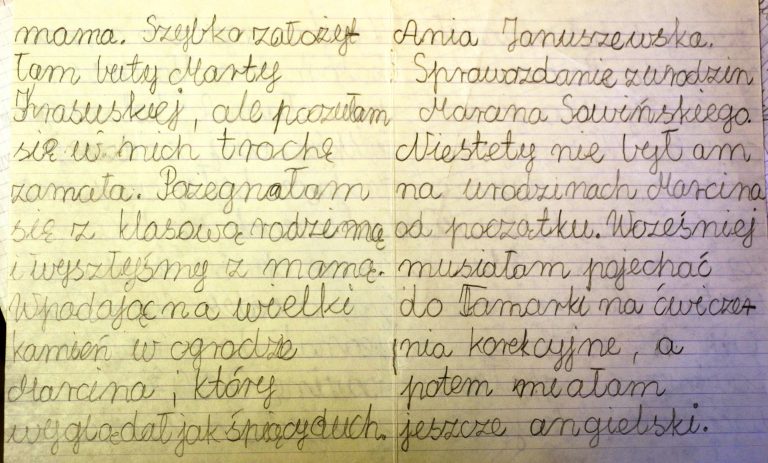 mama. Szybko założy-
łam buty Marty
Krasuskiej, ale poczułam
się w nich trochę
zamała. Pożegnałam
się z klasową rodzimą
i wyszłyśmy z mamą.
Wpadając na wielki
kamień w ogrodze
Marcina, który
wyglądał jak śpiący duch.
Ania Januszewska.
Sprawozdanie z urodzin
Marcina Sowińskiego.
Niestety nie był am
na urodzinach Marcina
od początku. Wcześniej
musiałam pojechać
do Tamarki na ćwicze-
nia korekcyjne, a
potem miałam
jeszcze angielski.